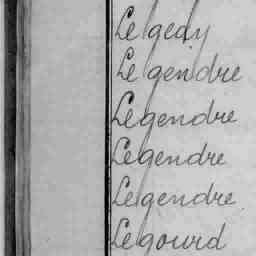 Le geay
Le gendre
Le gendre
Legendre
Legendre
Le gourd